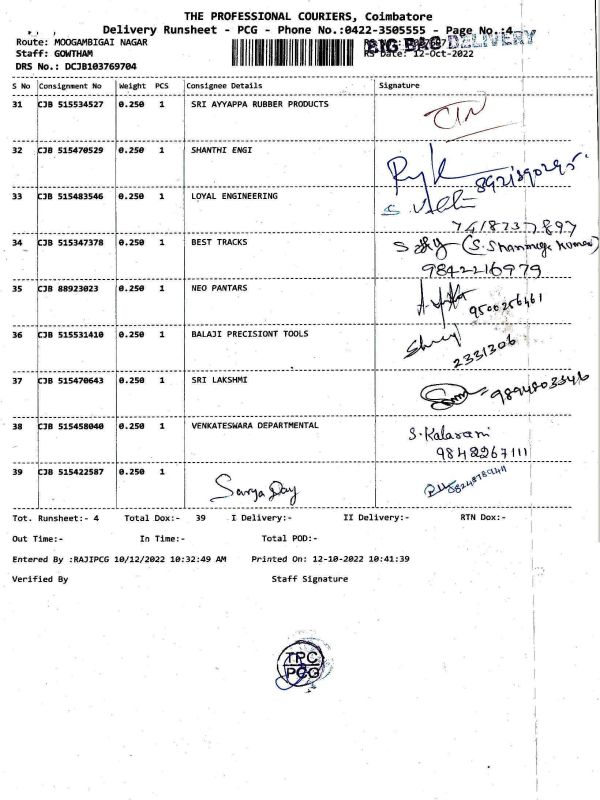 THE PROFESSIONAL COURIERS, Coimbatore
Delivery Runsheet - PCG - Phone No.:0422-3505555 - Page No.:4
BIG BAG DELIVERY
Route: MOOGAMBIGAI NAGAR
Staff: GOWTHAM RS Date: 12-Oct-2022
DRS No.: DCJB103769704
S No Consignment No Weight PCS Consignee Details Signature
31 CJB 515534527 0.250 1 SRI AYYAPPA RUBBER PRODUCTS
32 CJB 515470529 0.250 1 SHANTHI ENGI
33 CJB 515483546 0.250 1 LOYAL ENGINEERING
7418737897
34 CJB 515347378 0.250 1 BEST TRACKS
9842216979
35 CJB 88923023 0.250 1 NEO PANTARS
9500256461
36 CJB 515531410 0.250 1 BALAJI PRECISIONT TOOLS
2331306
37 CJB 515470643 0.250 1 SRI LAKSHMI
9894803346
38 CJB 515458040 0.250 1 VENKATESWARA DEPARTMENTAL S. Kalavani
9842267111
39 CJB 515422587 0.250 1
Tot. Runsheet:- 4 Total Dox:- 39 I Delivery:- II Delivery:- RTN Dox:-
Out Time:- In Time:- Total POD:-
Entered By :RAJIPCG 10/12/2022 10:32:49 AM Printed On: 12-10-2022 10:41:39
Verified By Staff Signature
TPC
PCG